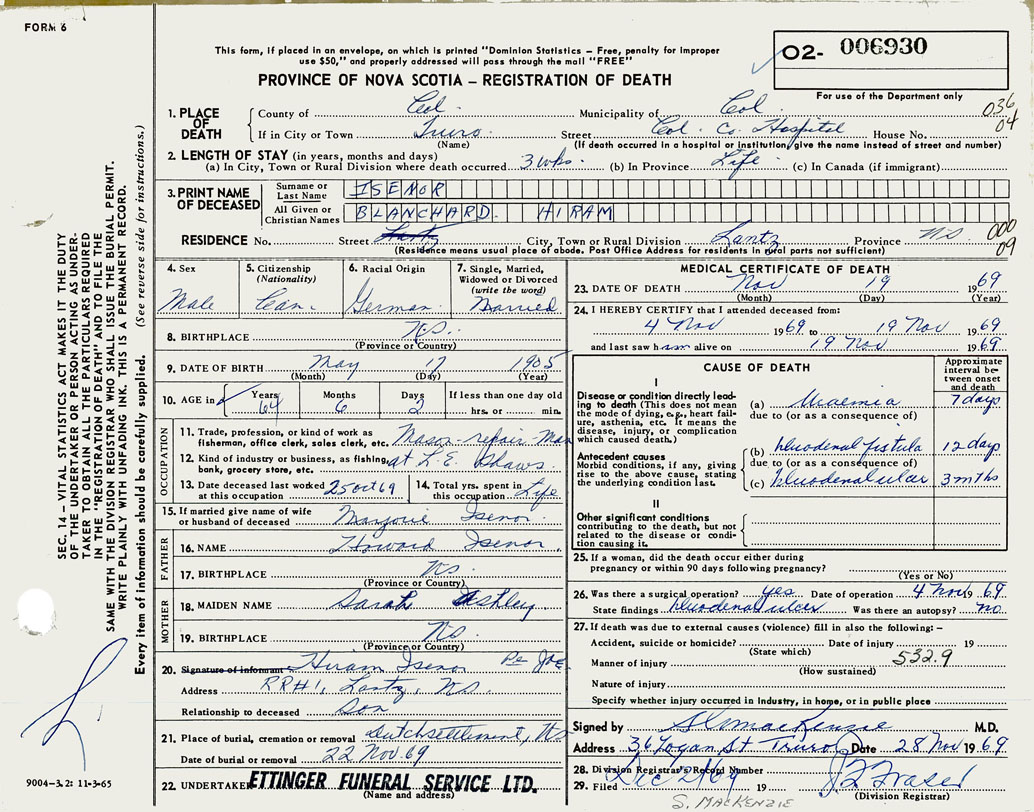 FORM 6
This form, if placed in an envelope, on which is printed "Dominion Statistics – Free, penalty for improper
use $50," and properly addressed will pass through the mail "FREE"
PROVINCE OF NOVA SCOTIA – REGISTRATION OF DEATH
O2- 006930
For use of the Department only
036
04
1. PLACE OF DEATH
County of Col. Municipality of Col
If in City or Town Truro. Street Col. Co. Hospital House No.
(Name) (If death occurred in a hospital or institution, give the name instead of street and number)
2. LENGTH OF STAY (in years, months and days)
(a) In City, Town or Rural Division where death occurred 3 wks. (b) In Province Life (c) In Canada (if immigrant)
3. PRINT NAME OF DECEASED
Surname or Last Name ISENOR
All Given or Christian Names BLANCHARD HIRAM
RESIDENCE No. Street Lantz City, Town or Rural Division Lantz Province NS
(Residence means usual place of abode. Post Office Address for residents in rural parts not sufficient)
000
09
4. Sex Male
5. Citizenship (Nationality) Can.
6. Racial Origin German
7. Single, Married, Widowed or Divorced (write the word) Married
8. BIRTHPLACE NS.
(Province or Country)
9. DATE OF BIRTH May 17 1905
(Month) (Day) (Year)
10. AGE in Years 64 Months 6 Days 2 If less than one day old
hrs. or min.
OCCUPATION
11. Trade, profession, or kind of work as
fisherman, office clerk, sales clerk, etc. Mason-repair Man
12. Kind of industry or business, as fishing,
bank, grocery store, etc. at L.E. Shaws.
13. Date deceased last worked
at this occupation 25 oct 69
14. Total yrs. spent in
this occupation Life
15. If married give name of wife
or husband of deceased Marjorie Isenor
FATHER
16. NAME Howard Isenor
17. BIRTHPLACE NS
(Province or Country)
MOTHER
18. MAIDEN NAME Sarah Ashley
19. BIRTHPLACE NS
(Province or Country)
20. Signature of informant Hiram Isenor Per JOE
Address RR#1, Lantz, NS.
Relationship to deceased Son
21. Place of burial, cremation or removal Dutchsettlement, NS
Date of burial or removal 22 Nov. 69
22. UNDERTAKER ETTINGER FUNERAL SERVICE LTD.
(Name and address)
MEDICAL CERTIFICATE OF DEATH
23. DATE OF DEATH Nov 19 1969
(Month) (Day) (Year)
24. I HEREBY CERTIFY that I attended deceased from:
4 Nov 1969 to 19 Nov 1969
and last saw him alive on 19 Nov 1969.
CAUSE OF DEATH
Approximate interval between onset and death
I
Disease or condition directly leading to death (This does not mean the mode of dying, e.g., heart failure, asthenia, etc. It means the disease, injury, or complication which caused death.)
(a) Uraemia 7 days
due to (or as a consequence of)
Antecedent causes
Morbid conditions, if any, giving rise to the above cause, stating the underlying condition last.
(b) duodenal fistula 12 days
due to (or as a consequence of)
(c) duodenal ulcer 3 mths
II
Other significant conditions
contributing to the death, but not related to the disease or condition causing it.
25. If a woman, did the death occur either during
pregnancy or within 90 days following pregnancy?
(Yes or No)
26. Was there a surgical operation? yes Date of operation 4 Nov 1969
State findings duodenal ulcer Was there an autopsy? no
27. If death was due to external causes (violence) fill in also the following: –
Accident, suicide or homicide? Date of injury 19
(State which)
Manner of injury 532.9
(How sustained)
Nature of injury
Specify whether injury occurred in industry, in home, or in public place
Signed by MacKenzie M.D.
Address 36 Logan St Truro Date 28 Nov 1969
28. Division Registrar's Record Number
29. Filed Dec 2/69 19 Fraser
(Division Registrar)
S. MACKENZIE
SEC. 14 – VITAL STATISTICS ACT MAKES IT THE DUTY
OF THE UNDERTAKER OR PERSON ACTING AS UNDER-
TAKER TO OBTAIN ALL THE PARTICULARS REQUIRED
IN THE "REGISTRATION OF DEATH" AND TO FILE THE
SAME WITH THE DIVISION REGISTRAR WHO SHALL ISSUE THE BURIAL PERMIT.
WRITE PLAINLY WITH UNFADING INK. THIS IS A PERMANENT RECORD.
Every item of information should be carefully supplied. (See reverse side for instructions.)
9004-3.2: 11-3-65